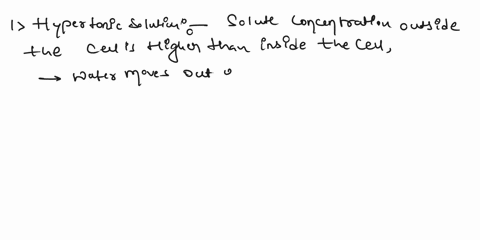 1> Hypertonic solution :— Solute concentration outside
the cell is Higher than inside the cell,
→ water moves out o